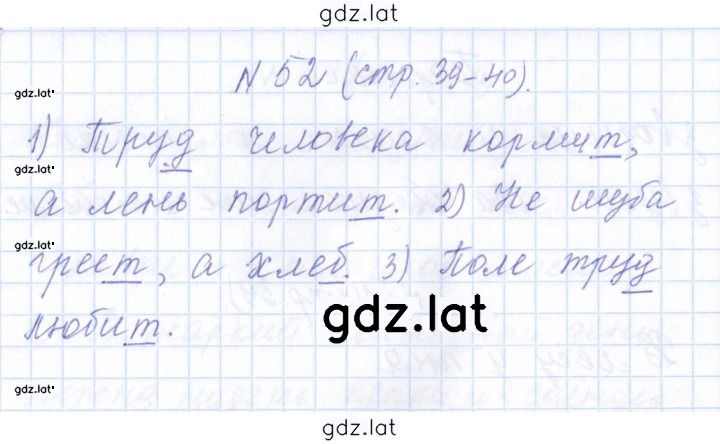 gdz.lat
N 52 (стр. 39-40).
gdz.lat
1) Труд человека кормит,
gdz.lat
а лень портит. 2) Не шуба
gdz.lat
греет, а хлеб. 3) Поле труд
gdz.lat
любит.
gdz.lat
gdz.lat
gdz.lat